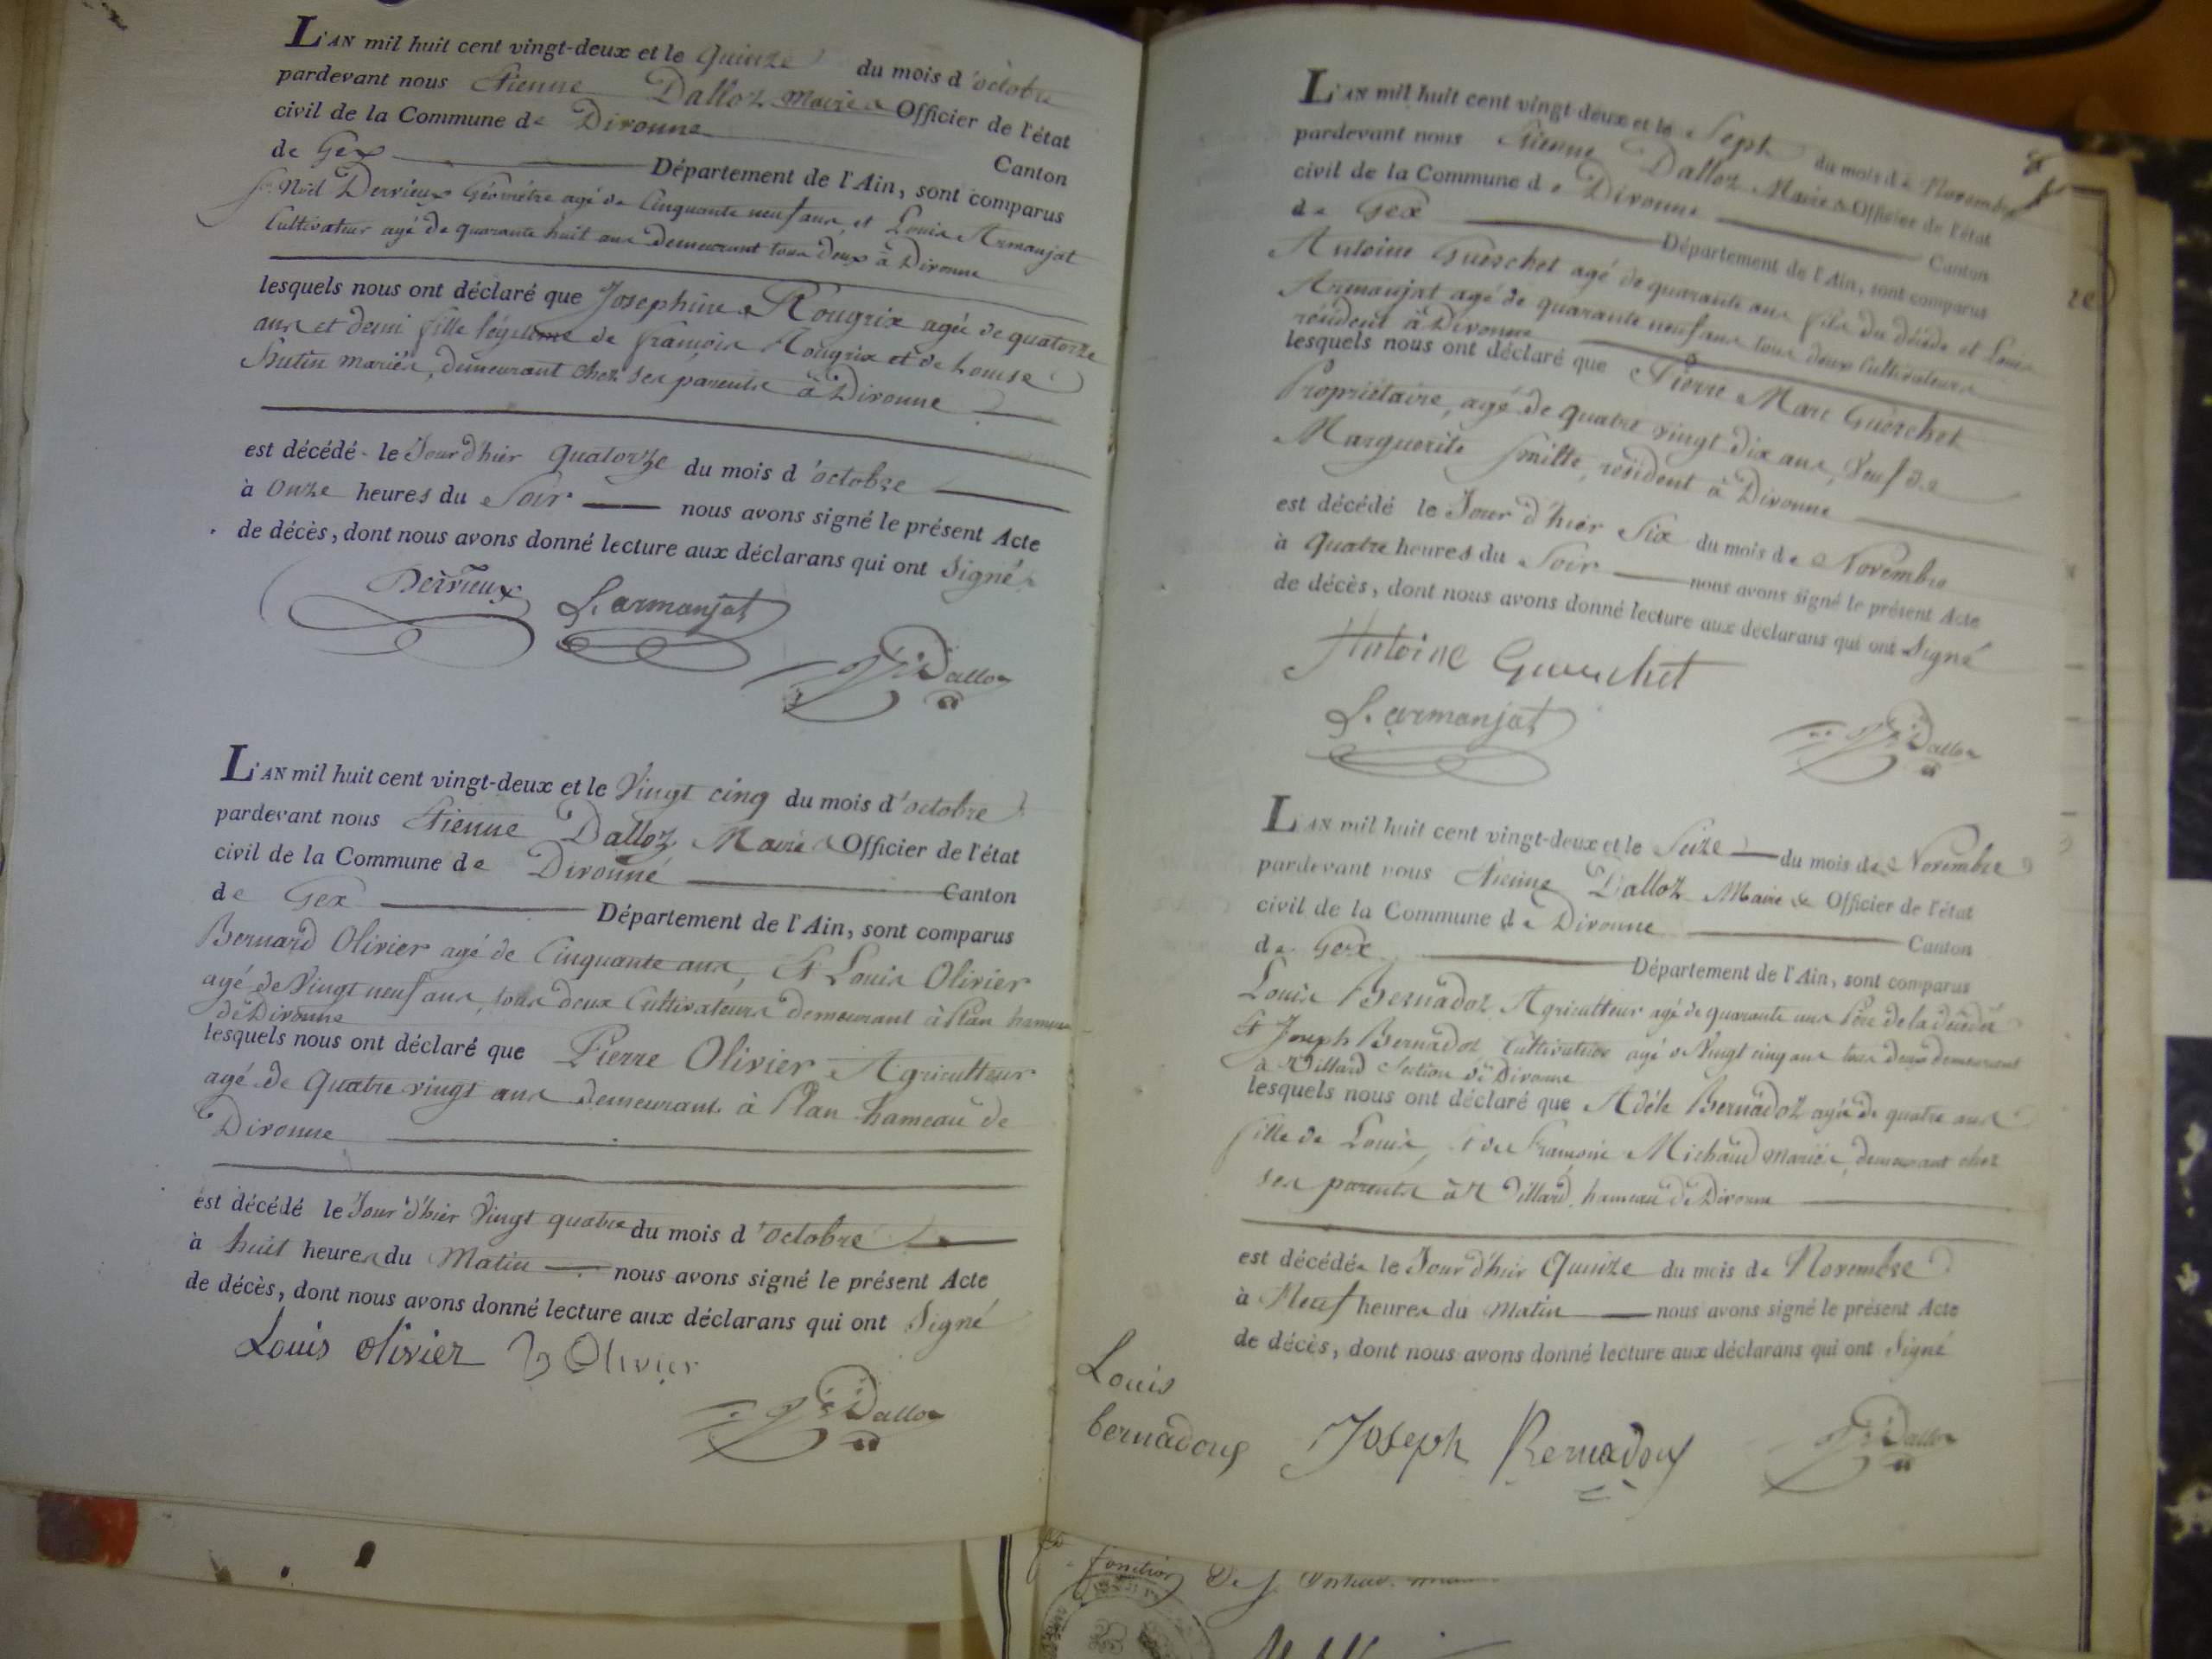 L'AN mil huit cent vingt-deux et le Quinze du mois d'octobre
pardevant nous Etienne Dalloz Maire & Officier de l'état
civil de la Commune de Divonne
Canton
de Gex Département de l'Ain, sont comparus
Derrieux Géomètre agé de Cinquante neuf ans, et Louis Armanjat
Cultivateur agé de quarante huit ans demeurant tous deux à Divonne
lesquels nous ont déclaré que Josephine Rougrix agée de quatorze
ans et demi fille légitime de François Rougrix et de Louise
mariés, demeurant chez ses parents à Divonne
est décédé le Jour d'hier Quatorze du mois d'octobre
à Onze heures du Soir nous avons signé le présent Acte
de décès, dont nous avons donné lecture aux déclarans qui ont Signé
Derrieux L. armanjat
Dalloz
L'AN mil huit cent vingt-deux et le Vingt cinq du mois d'octobre
pardevant nous Etienne Dalloz Maire & Officier de l'état
civil de la Commune de Divonne
Canton
de Gex Département de l'Ain, sont comparus
Bernard Olivier agé de Cinquante ans, Et Louis Olivier
agé de Vingt neuf ans, tous deux Cultivateurs demeurant à Plan hameau
de Divonne
lesquels nous ont déclaré que Pierre Olivier Agriculteur
agé de Quatre vingt ans demeurant à Plan hameau de
Divonne
est décédé le Jour d'hier Vingt quatre du mois d'octobre
à huit heures du Matin nous avons signé le présent Acte
de décès, dont nous avons donné lecture aux déclarans qui ont Signé
Louis olivier B Olivier
Dalloz
L'AN mil huit cent vingt-deux et le Sept du mois de Novembre
pardevant nous Etienne Dalloz Maire & Officier de l'état
civil de la Commune de Divonne
Canton
de Gex Département de l'Ain, sont comparus
Antoine Guerchet agé de quarante ans fils du décédé et Louis
Armanjat agé de quarante neuf ans tous deux Cultivateurs
résident à Divonne
lesquels nous ont déclaré que Pierre Marc Guerchet
Propriétaire, agé de quatre vingt dix ans, Veuf de
Marguerite résident à Divonne
est décédé le Jour d'hier Six du mois de Novembre
à Quatre heures du Soir nous avons signé le présent Acte
de décès, dont nous avons donné lecture aux déclarans qui ont Signé
Antoine Guerchet
L. armanjat
Dalloz
L'AN mil huit cent vingt-deux et le Seize du mois de Novembre
pardevant nous Etienne Dalloz Maire & Officier de l'état
civil de la Commune de Divonne
Canton
de Gex Département de l'Ain, sont comparus
Louis Bernadoz Agriculteur agé de quarante ans Père de la décédée
Et Joseph Bernadoz Cultivateur agé de Vingt cinq ans tous deux demeurant
à Villard Section de Divonne
lesquels nous ont déclaré que Adéle Bernadoz agée de quatre ans
fille de Louis, Et de Françoise Michaud mariés, demeurant chez
ses parents à Villard, hameau de Divonne
est décédée le Jour d'hier Quinze du mois de Novembre
à Neuf heures du Matin nous avons signé le présent Acte
de décès, dont nous avons donné lecture aux déclarans qui ont Signé
Louis
bernadoux Joseph Bernadoux
Dalloz